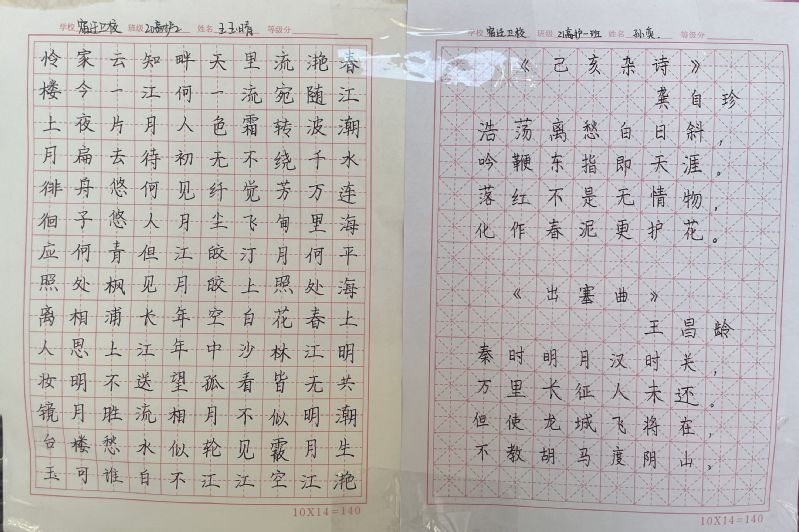 学校 宿迁卫校 班级 20高护2 姓名 王玉晴 等级分
春江潮水连海平海上明共潮生滟
滟随波千万里何处春江无明月江
流宛转绕芳甸月照花林皆似霰空
里流霜不觉飞汀上白沙看不见江
天一色无纤尘皎皎空中孤月轮江
畔何人初见月江月年年望相似不
知江月待何人但见长江送流水白
云一片去悠悠青枫浦上不胜愁谁
家今夜扁舟子何处相思明月楼可
怜楼上月徘徊应照离人妆镜台玉
10X14=140
学校 宿迁卫校 班级 21高护一班 姓名 孙奕 等级分
《己亥杂诗》
龚自珍
浩荡离愁白日斜，
吟鞭东指即天涯。
落红不是无情物，
化作春泥更护花。
《出塞曲》
王昌龄
秦时明月汉时关，
万里长征人未还。
但使龙城飞将在，
不教胡马度阴山。
10X14=140